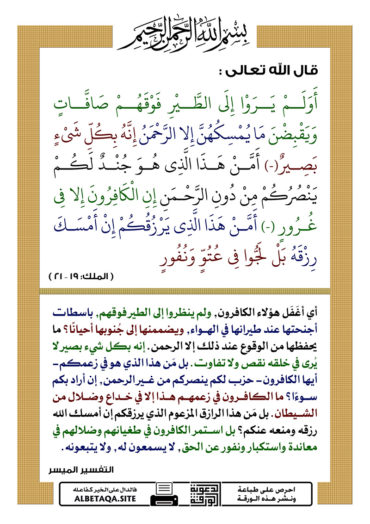 بسم الله الرحمن الرحيم
قال الله تعالى :
أَوَلَـــمْ يَـــرَوْا إِلَى الطَّـــيْرِ فَوْقَهُـــمْ صَافَّـــاتٍ
وَيَقْبِضْنَ مَا يُمْسِكُهُنَّ إِلا الرَّحْمَنُ إِنَّهُ بِكُلِّ شَيْءٍ
بَصِــيرٌ(-) أَمَّــنْ هَــذَا الَّذِي هُــوَ جُنْــدٌ لَكُــمْ
يَنْصُرُكُمْ مِنْ دُونِ الرَّحْـمَنِ إِنِ الْكَافِرُونَ إِلا فِي
غُــرُورٍ (-) أَمَّــنْ هَذَا الَّذِي يَرْزُقُكُمْ إِنْ أَمْسَــكَ
رِزْقَهُ بَلْ لَجُّوا فِي عُتُوٍّ وَنُفُورٍ
( الملك: ١٩ - ٢١ )
أي أغَفَل هؤلاء الكافرون, ولم ينظروا إلى الطير فوقهم, باسطات
أجنحتها عند طيرانها في الهـواء, ويضممنها إلى جُنوبها أحيانًا؟ ما
يحفظها من الوقوع عند ذلك إلا الرحمن. إنه بكل شيء بصير لا
يُرى في خلقه نقص ولا تفاوت. بل مَن هذا الذي هو في زعمكم-
أيها الكافرون- حزب لكم ينصركم من غـير الرحمن, إن أراد بكم
سـوءًا؟ ما الكافـرون في زعمهـم هـذا إلا في خـداع وضـلال من
الشـيطان. بل مَن هذا الرازق المزعوم الذي يرزقكم إن أمسك الله
رزقه ومنعه عنكم؟ بل اسـتمر الكافرون في طغيانهم وضلالهم في
معاندة واستكبار ونفور عن الحق, لا يسمعون له, ولا يتبعونه.
التفسير الميسر
احرص على طباعة
ونشر هذه الورقة
الدعوية
الورقة
فالدال على الخير كفاعله
ALBETAQA.SITE